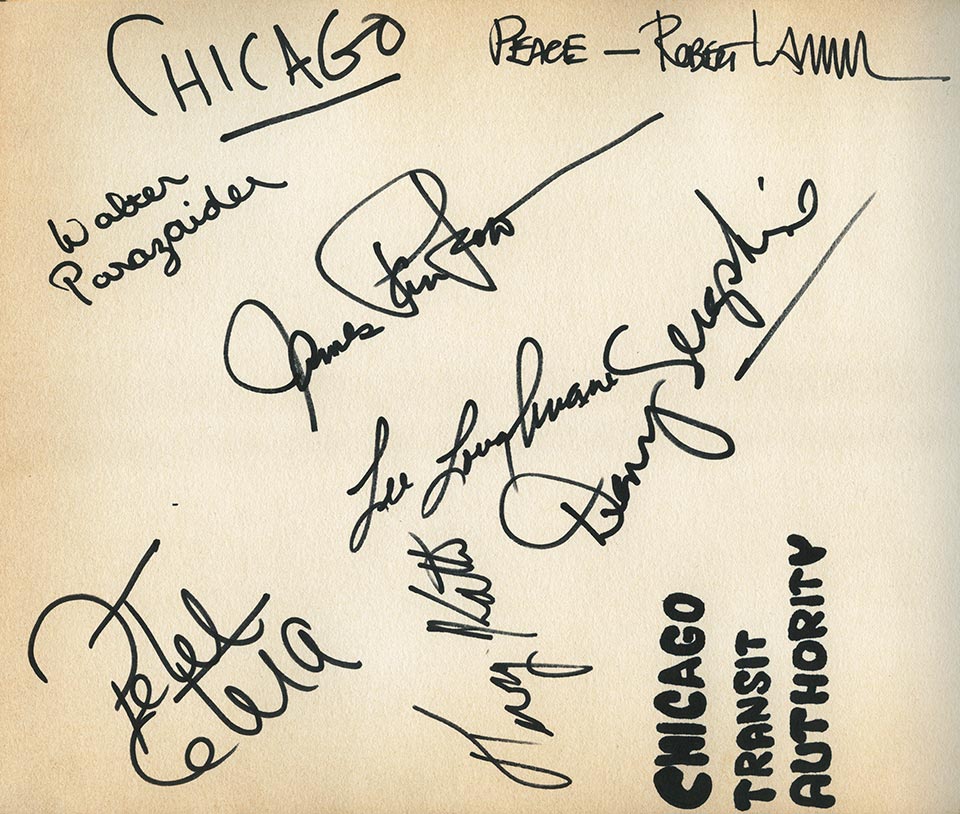 CHICAGO
PEACE — ROBERT LAMM
Walter
Parazaider
James Pankow
Lee Loughnane
Danny Seraphine
Peter
Cetera
Terry Kath
CHICAGO
TRANSIT
AUTHORITY